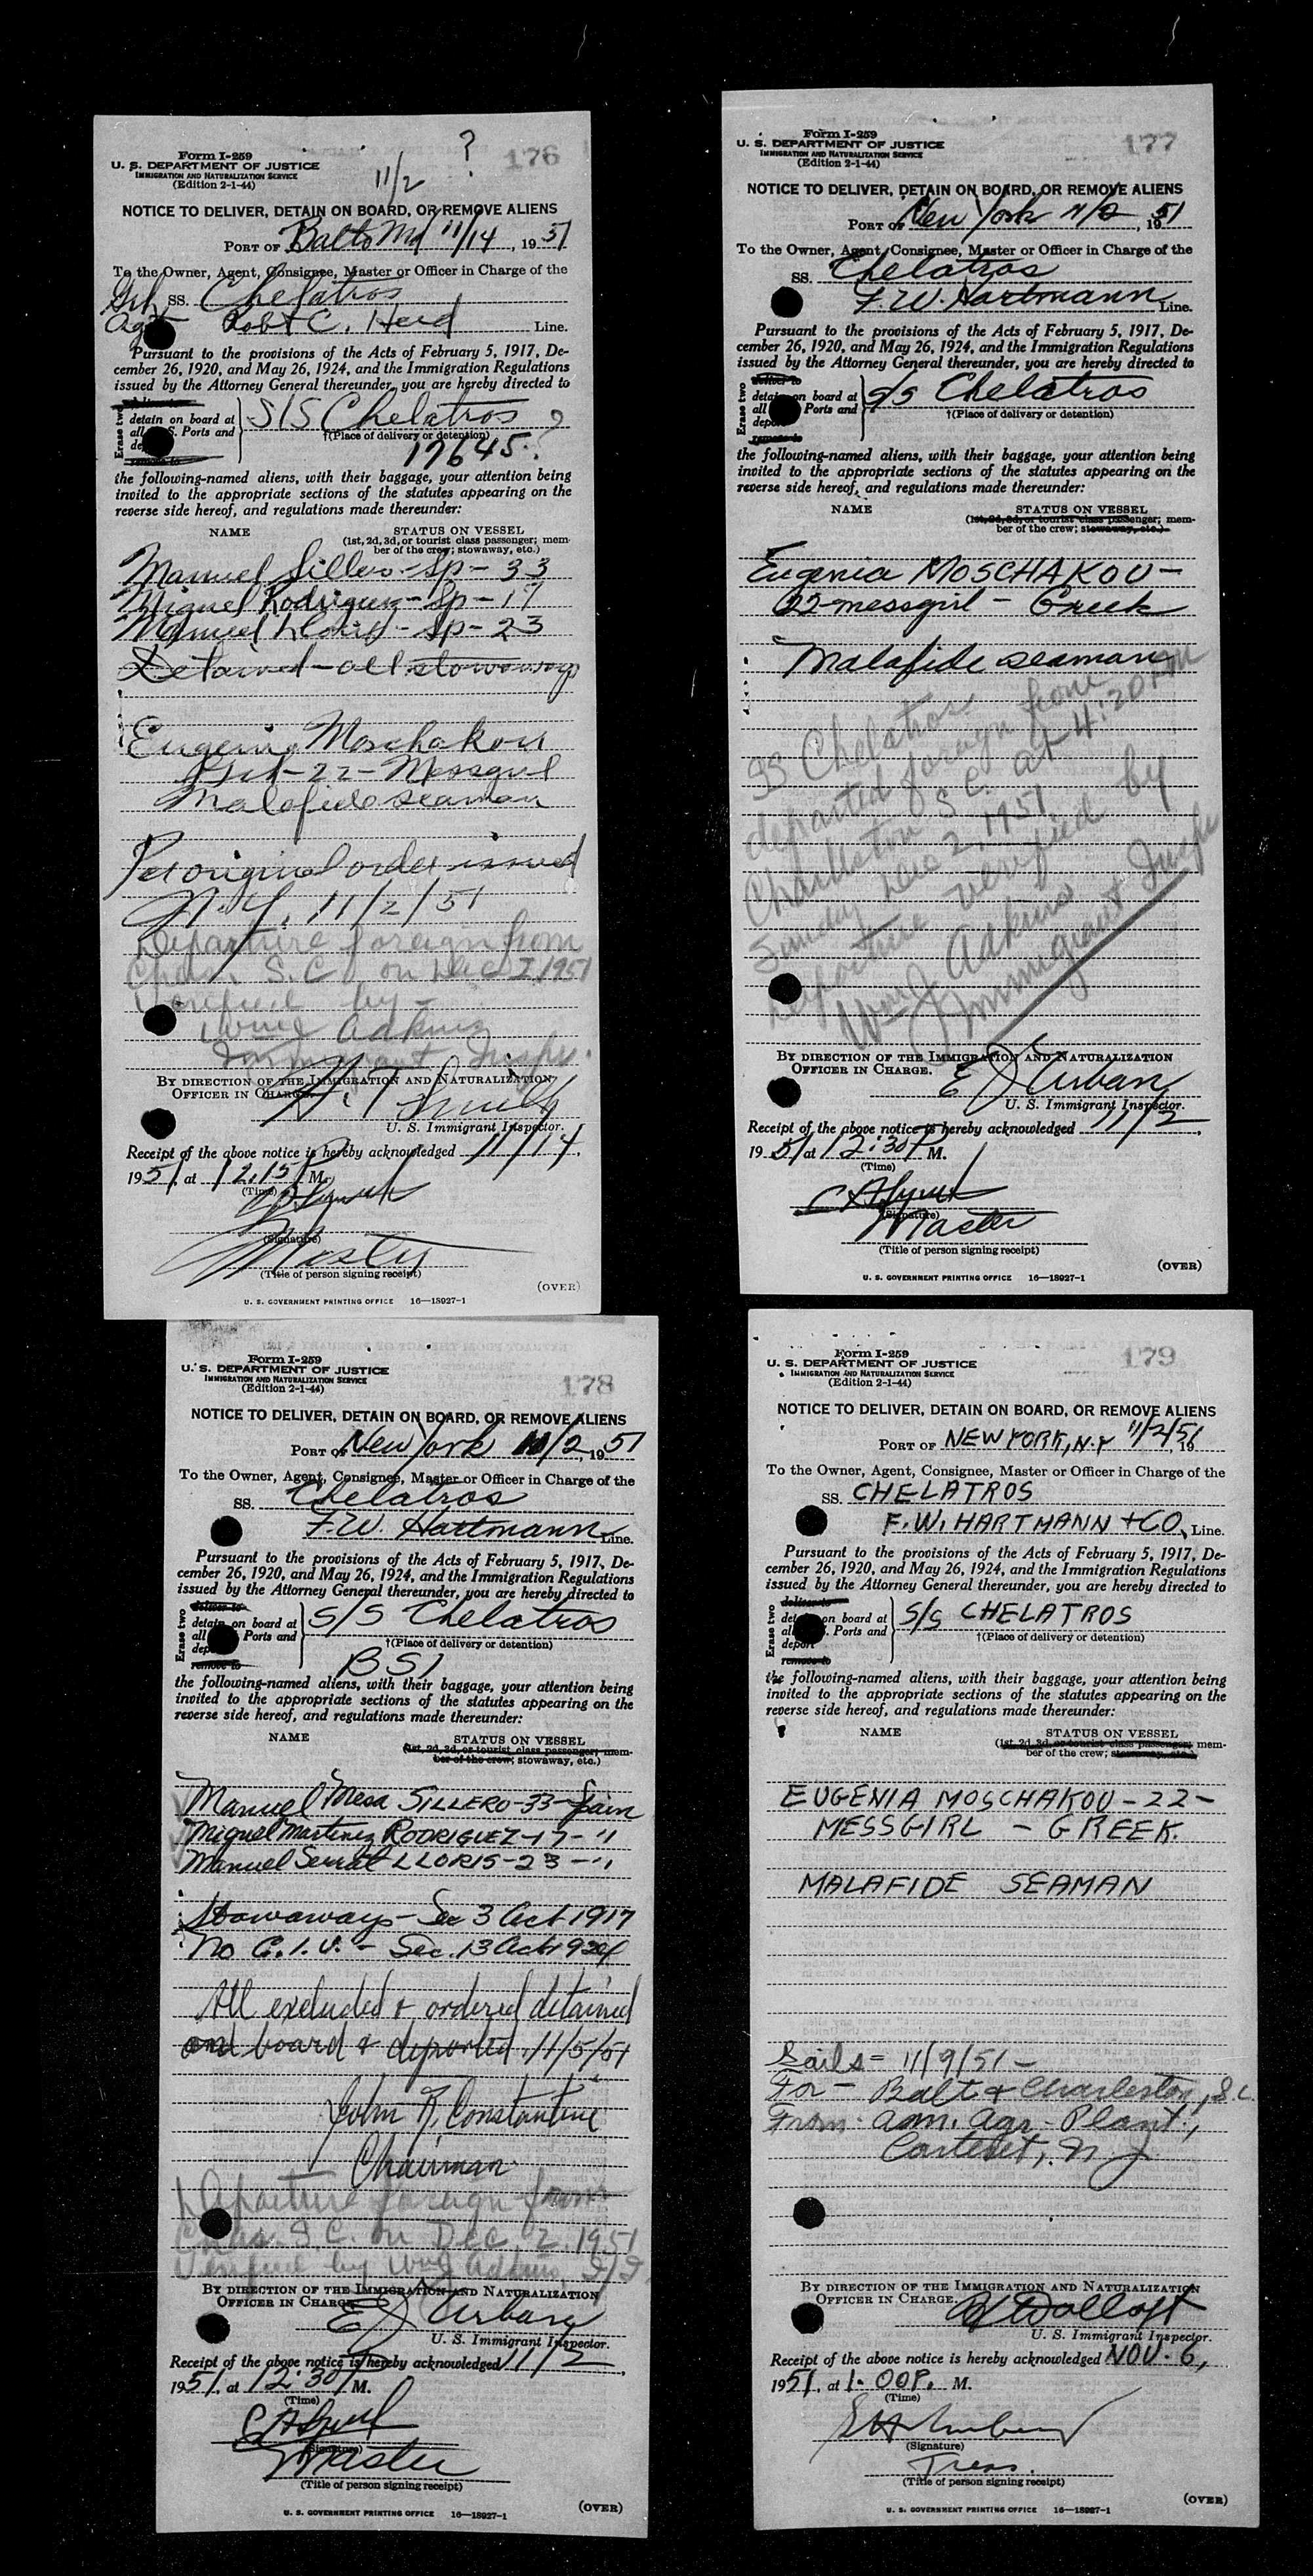 Form I-259
U. S. DEPARTMENT OF JUSTICE
IMMIGRATION AND NATURALIZATION SERVICE
(Edition 2-1-44)
176
11/2 ?
NOTICE TO DELIVER, DETAIN ON BOARD, OR REMOVE ALIENS
PORT OF Balto Md 11/14, 1951
To the Owner, Agent, Consignee, Master or Officer in Charge of the
Grk SS. Chelatros
Agt Robt C. Herd Line.
Pursuant to the provisions of the Acts of February 5, 1917, De-
cember 26, 1920, and May 26, 1924, and the Immigration Regulations
issued by the Attorney General thereunder, you are hereby directed to
Erase two
deliver to
detain on board at S/S Chelatros ?
all U. S. Ports and †(Place of delivery or detention)
deport 17645. ?
remove to
the following-named aliens, with their baggage, your attention being
invited to the appropriate sections of the statutes appearing on the
reverse side hereof, and regulations made thereunder:
NAME STATUS ON VESSEL
(1st, 2d, 3d, or tourist class passenger; mem-
ber of the crew; stowaway, etc.)
Manuel Sillero - Sp - 33
Miguel Rodriguez - Sp - 17
Manuel Lloris - Sp - 23
Detained - all stowaways
Eugenia Moschakou
Grk - 22 - Messgirl
Malafide seaman
Per original order issued
N.Y. 11/2/51
Departure foreign from
Chasn. S.C. on Dec 2 1951
Verified by -
Wm J Adkins
Immigrant Inspr.
BY DIRECTION OF THE IMMIGRATION AND NATURALIZATION
OFFICER IN CHARGE.
H. T. Smith
U. S. Immigrant Inspector.
Receipt of the above notice is hereby acknowledged 11/14,
1951, at 12.15 P M.
(Time)
(Signature)
Master
(Title of person signing receipt)
(OVER)
U. S. GOVERNMENT PRINTING OFFICE 16—18927-1
Form I-259
U. S. DEPARTMENT OF JUSTICE
IMMIGRATION AND NATURALIZATION SERVICE
(Edition 2-1-44)
177
NOTICE TO DELIVER, DETAIN ON BOARD, OR REMOVE ALIENS
PORT OF New York 11/2, 1951
To the Owner, Agent, Consignee, Master or Officer in Charge of the
SS. Chelatros
F. W. Hartmann Line.
Pursuant to the provisions of the Acts of February 5, 1917, De-
cember 26, 1920, and May 26, 1924, and the Immigration Regulations
issued by the Attorney General thereunder, you are hereby directed to
Erase two
deliver to
detain on board at S/S Chelatros
all U. S. Ports and †(Place of delivery or detention)
deport
remove to
the following-named aliens, with their baggage, your attention being
invited to the appropriate sections of the statutes appearing on the
reverse side hereof, and regulations made thereunder:
NAME STATUS ON VESSEL
(1st, 2d, 3d, or tourist class passenger; mem-
ber of the crew; stowaway, etc.)
Eugenia MOSCHAKOU -
22 - messgirl - Greek
Malafide seaman
SS Chelatros
departed foreign from
Charleston S.C. at 4:20 PM
Sunday Dec 2, 1951
Departure verified by
Wm J Adkins
Immigrant Inspr
BY DIRECTION OF THE IMMIGRATION AND NATURALIZATION
OFFICER IN CHARGE.
E J Urban
U. S. Immigrant Inspector.
Receipt of the above notice is hereby acknowledged 11/2,
1951 at 12:30 P M.
(Time)
(Signature)
Master
(Title of person signing receipt)
(OVER)
U. S. GOVERNMENT PRINTING OFFICE 16—18927-1
Form I-259
U. S. DEPARTMENT OF JUSTICE
IMMIGRATION AND NATURALIZATION SERVICE
(Edition 2-1-44)
178
NOTICE TO DELIVER, DETAIN ON BOARD, OR REMOVE ALIENS
PORT OF New York 11/2, 1951
To the Owner, Agent, Consignee, Master or Officer in Charge of the
SS. Chelatros
F. W. Hartmann Line.
Pursuant to the provisions of the Acts of February 5, 1917, De-
cember 26, 1920, and May 26, 1924, and the Immigration Regulations
issued by the Attorney General thereunder, you are hereby directed to
Erase two
deliver to
detain on board at S/S Chelatros
all U. S. Ports and †(Place of delivery or detention)
deport
remove to BSI
the following-named aliens, with their baggage, your attention being
invited to the appropriate sections of the statutes appearing on the
reverse side hereof, and regulations made thereunder:
NAME STATUS ON VESSEL
(1st, 2d, 3d, or tourist class passenger; mem-
ber of the crew; stowaway, etc.)
Manuel Mesa SILLERO - 33 - Spain
Miguel Martinez RODRIGUEZ - 17 - "
Manuel Serrat LLORIS - 23 - "
Stowaways - Sec 3 Act 1917
No C.I.V. - Sec. 13 Act 1924
All excluded & ordered detained
on board & deported. 11/5/51
John F. Constantine
Chairman
Departure foreign from
Chas. S.C. on Dec. 2, 1951
Verified by Wm J Adkins, I/I.
BY DIRECTION OF THE IMMIGRATION AND NATURALIZATION
OFFICER IN CHARGE.
E J Urban
U. S. Immigrant Inspector.
Receipt of the above notice is hereby acknowledged 11/2,
1951, at 12:30 P M.
(Time)
(Signature)
Master
(Title of person signing receipt)
(OVER)
U. S. GOVERNMENT PRINTING OFFICE 16—18927-1
Form I-259
U. S. DEPARTMENT OF JUSTICE
IMMIGRATION AND NATURALIZATION SERVICE
(Edition 2-1-44)
179
NOTICE TO DELIVER, DETAIN ON BOARD, OR REMOVE ALIENS
PORT OF NEW YORK, N.Y 11/2/51 19
To the Owner, Agent, Consignee, Master or Officer in Charge of the
SS. CHELATROS
F. W. HARTMANN + CO. Line.
Pursuant to the provisions of the Acts of February 5, 1917, De-
cember 26, 1920, and May 26, 1924, and the Immigration Regulations
issued by the Attorney General thereunder, you are hereby directed to
Erase two
deliver to
detain on board at S/S CHELATROS
all U. S. Ports and †(Place of delivery or detention)
deport
remove to
the following-named aliens, with their baggage, your attention being
invited to the appropriate sections of the statutes appearing on the
reverse side hereof, and regulations made thereunder:
NAME STATUS ON VESSEL
(1st, 2d, 3d, or tourist class passenger; mem-
ber of the crew; stowaway, etc.)
EUGENIA MOSCHAKOU - 22 -
MESSGIRL - GREEK.
MALAFIDE SEAMAN
Sails = 11/9/51 -
For - Balt & Charleston, S.C.
From - Am. Agr. Plant,
Carteret, N.J.
BY DIRECTION OF THE IMMIGRATION AND NATURALIZATION
OFFICER IN CHARGE.
U. S. Immigrant Inspector.
Receipt of the above notice is hereby acknowledged NOV. 6,
1951, at 1.00 P. M.
(Time)
(Signature)
Treas.
(Title of person signing receipt)
(OVER)
U. S. GOVERNMENT PRINTING OFFICE 16—18927-1